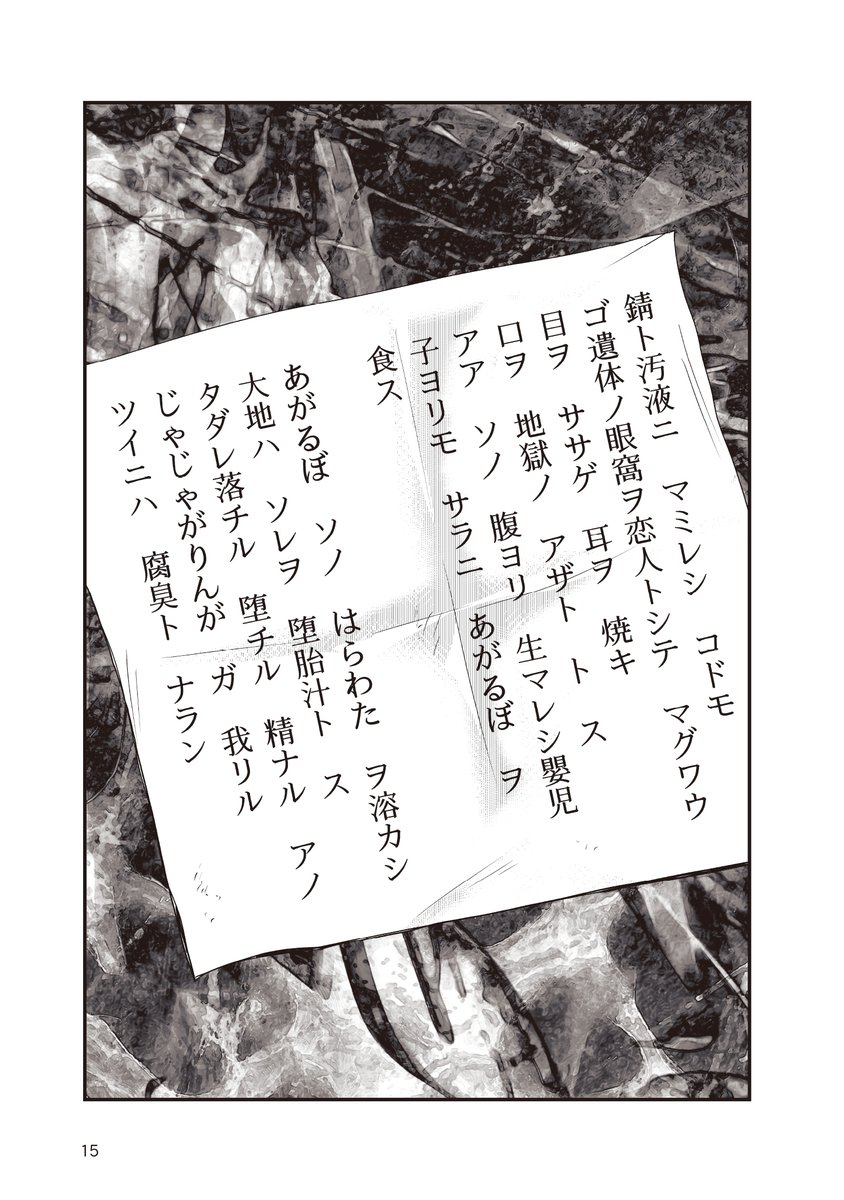 錆ト汚液ニ　マミレシ　コドモ
ゴ遺体ノ眼窩ヲ恋人トシテ　マグワウ
目ヲ　ササゲ　耳ヲ　焼キ
口ヲ　地獄ノ　アザト　ト　ス
アア　ソノ　腹ヨリ　生マレシ嬰児
子ヨリモ　サラニ　あがるぼ　ヲ
食ス
あがるぼ　ソノ　はらわた　ヲ溶カシ
大地ハ　ソレヲ　堕胎汁ト　ス
タダレ落チル　堕チル　精ナル　アノ
じゃじゃがりんが　ガ　我リル
ツイニハ　腐臭ト　ナラン
15